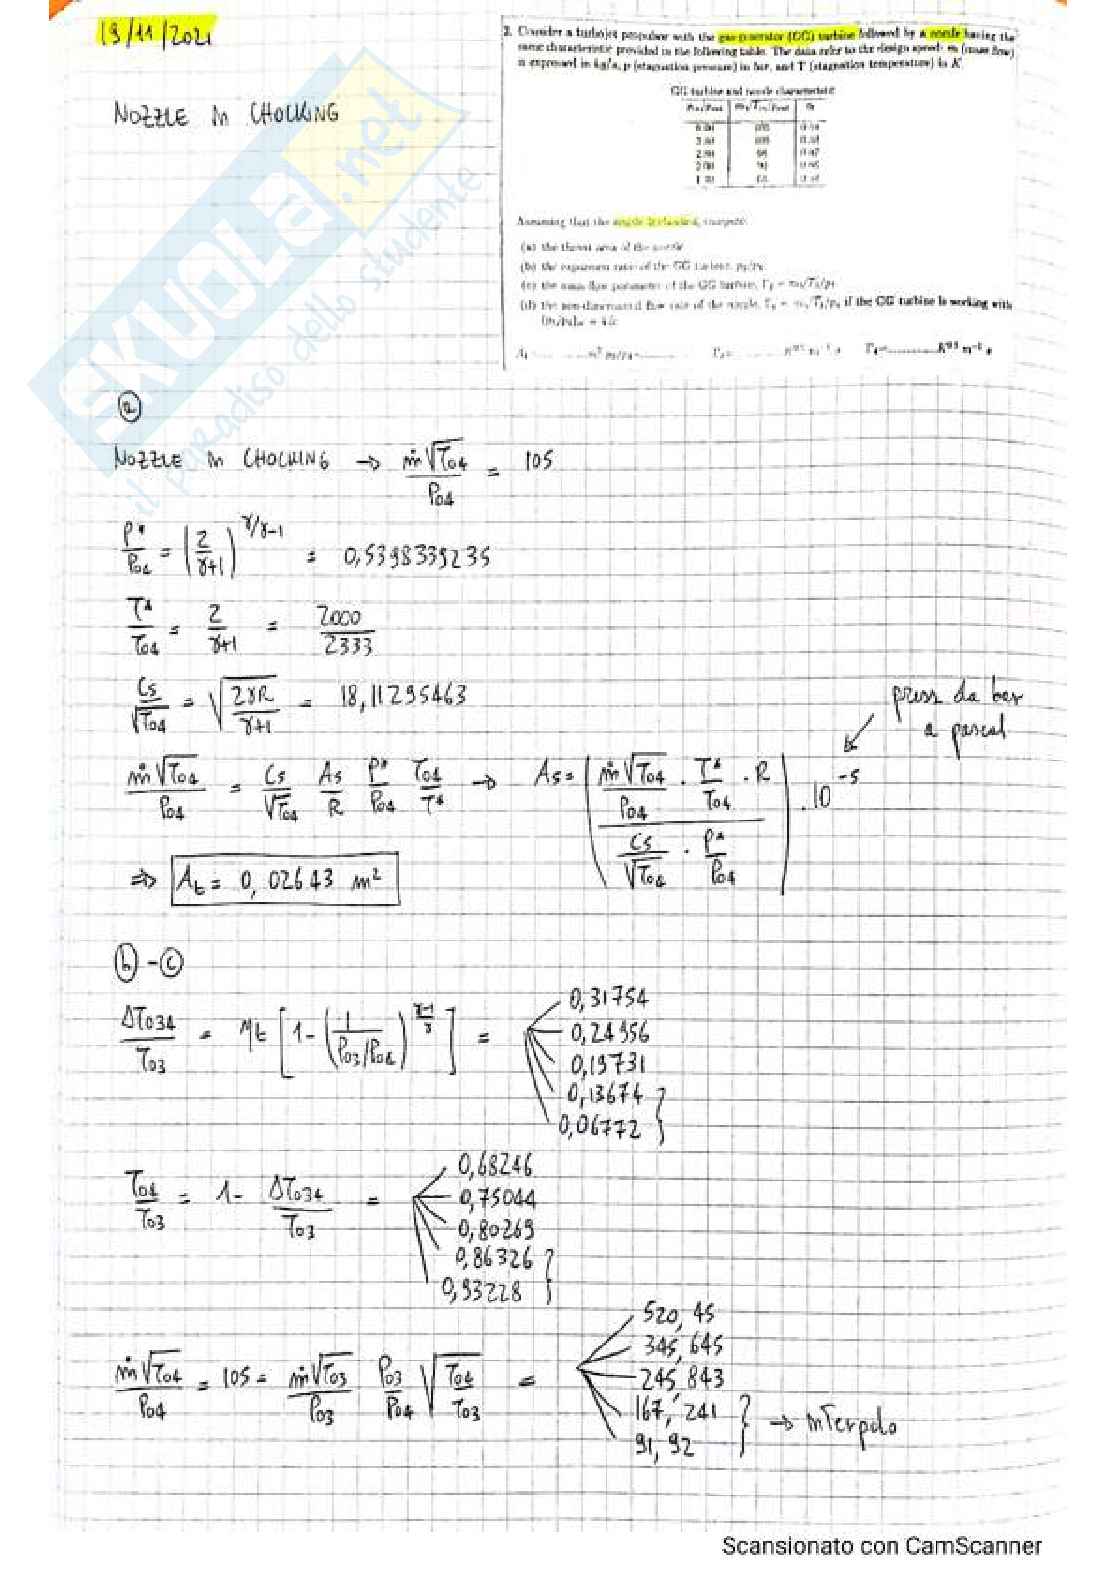 19/11/2021
NOZZLE IN CHOCKING
2. Consider a turbojet propulsor with the gas-generator (GG) turbine followed by a nozzle having the
same characteristic provided in the following table. The data refer to the design speed: m (mass flow)
is expressed in kg/s, p (stagnation pressure) in bar, and T (stagnation temperature) in K.
GG turbine and nozzle characteristic
Assuming that the nozzle is choked, compute:
(a) the throat area of the nozzle
(b) the expansion ratio of the GG turbine, p₃/p₄
(c) the mass flow parameter of the GG turbine, Γ₃ = m√T₃/p₃
(d) the non-dimensional flow rate of the nozzle, Γ₄ = m√T₄/p₄ if the GG turbine is working with
SKUOLA.net
il paradiso dello studente
ⓐ
NOZZLE IN CHOCKING → ṁ√T04/P04 = 105
P*/P04 = (2/(γ+1))^(γ/γ-1) = 0,5398339235
T*/T04 = 2/(γ+1) = 2000/2333
Cs/√T04 = √(2γR/(γ+1)) = 18,11295463
press da bar
a pascal
ṁ√T04/P04 = Cs/√T04 As/R P*/P04 T04/T* → As = ((ṁ√T04/P04 · T*/T04 · R)/(Cs/√T04 · P*/P04)) · 10^-5
⇒ At = 0,02643 m²
ⓑ - ⓒ
ΔT034/T03 = ηt [1 - (1/(P03/P04))^(γ-1/γ)] =
0,31754
0,24956
0,19731
0,13674
0,06772
T04/T03 = 1 - ΔT034/T03 =
0,68246
0,75044
0,80269
0,86326
0,93228
ṁ√T04/P04 = 105 = ṁ√T03/P03 P03/P04 √(T04/T03) =
520,45
345,645
245,843
167,241
91,92
→ INTerpolo
Scansionato con CamScanner